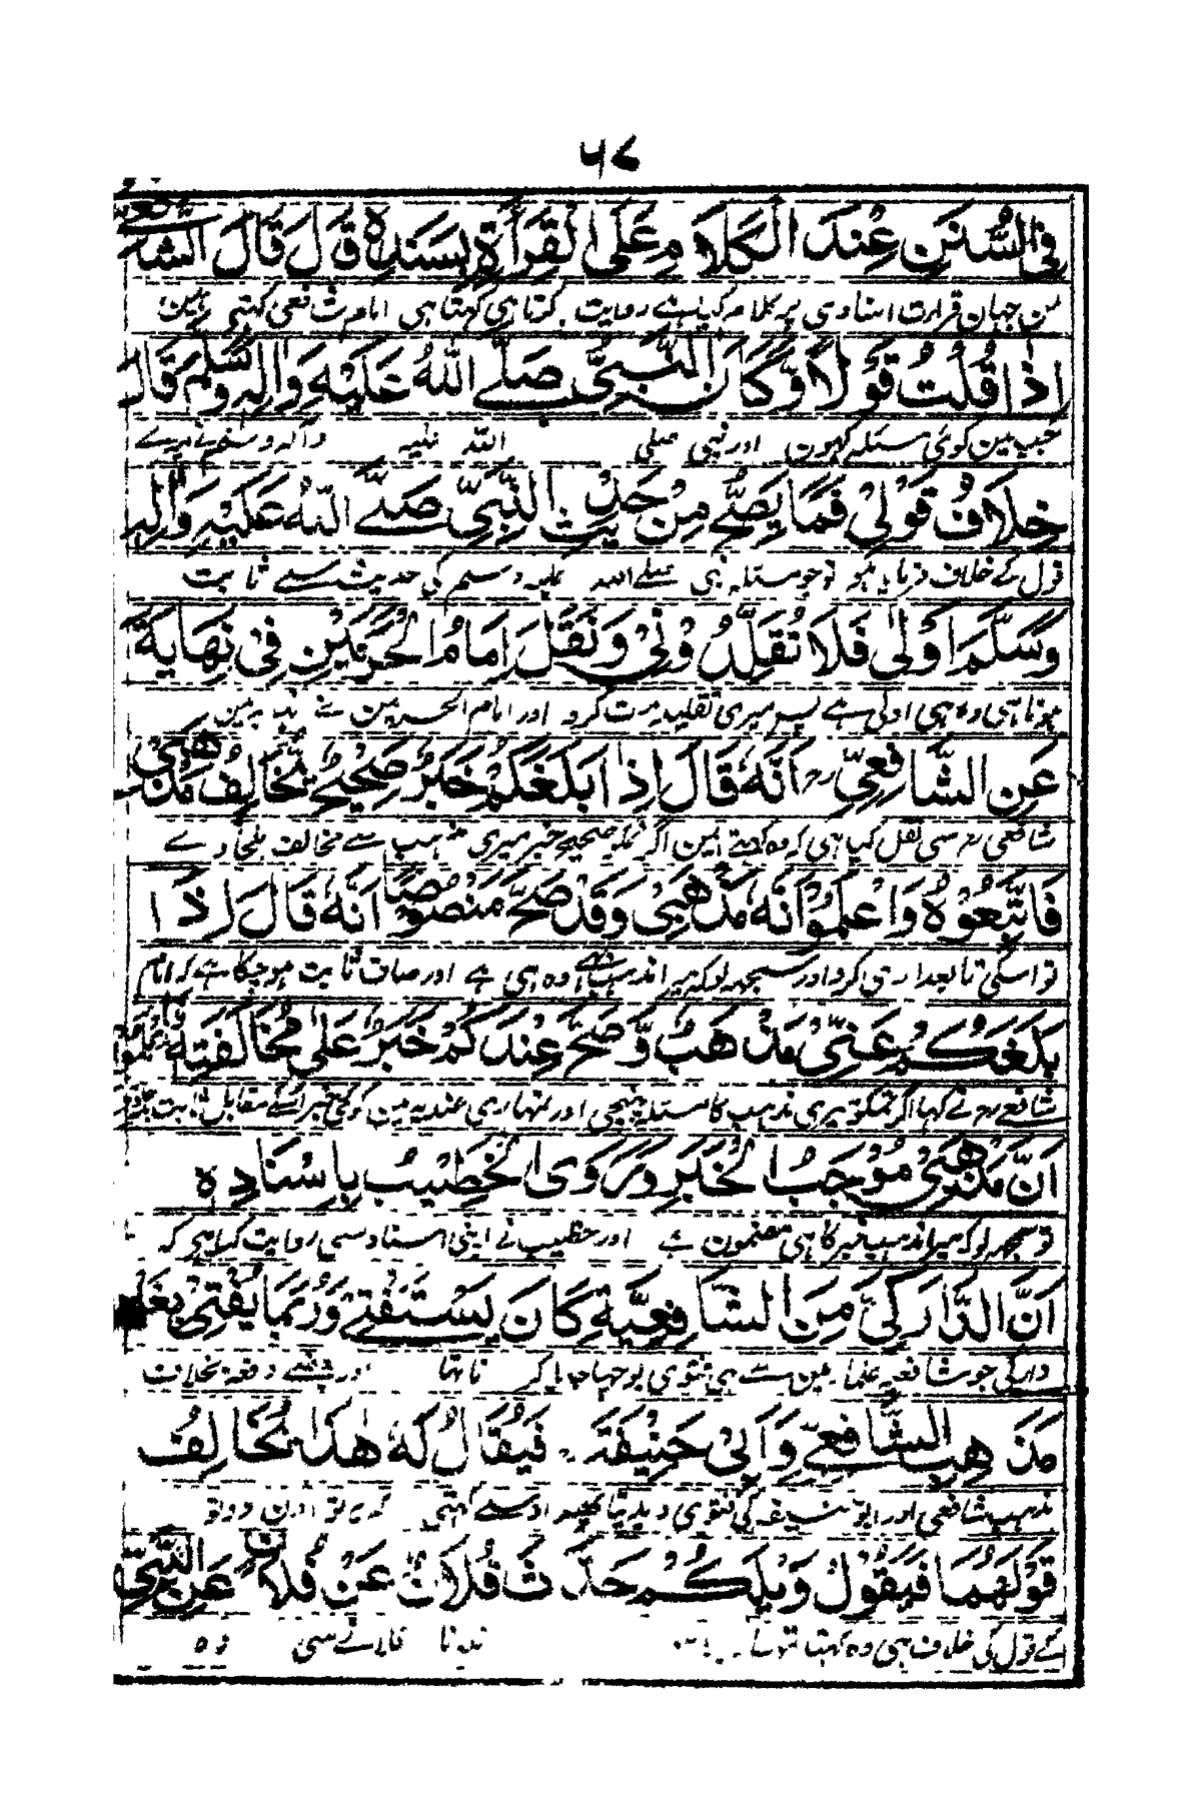 ٦٧
فِي السُّنَنِ عِنْدَ الْكَلَامِ عَلَى الْقِرَأَةِ بِسَنَدِهِ قَالَ قَالَ الشَّافِعِيُّ
من جہان قرارت اسنادی پر کلام کیا ہے روایت کرتا ہی کہتا ہی امام شافعی کہتی ہین
اِذَا قُلْتُ قَوْلًا وَّكَانَ النَّبِيُّ صَلَّے اللّٰهُ عَلَيْهِ وَاٰلِهٖ وَسَلَّمَ قَالَ
جب مین کوئی مسئلہ کہون اور نبی صلی اللہ علیہ وآلہ وسلم نے میرے
خِلَافَ قَوْلِيْ فَمَا يَصِحُّ مِنْ حَدِيْثِ النَّبِيِّ صَلَّے اللّٰهُ عَلَيْهِ وَاٰلِهٖ
قول کے خلاف فرمایا ہو تو جو مسئلہ نبی صلے اللہ علیہ وسلم کی حدیث سے ثابت
وَسَلَّمَ اَوْلٰى فَلَا تُقَلِّدُوْنِيْ وَنَقَلَ اِمَامُ الْحَرَمَيْنِ فِيْ نِهَايَةِ
ہوتا ہی وہ ہی اولی ہے پس میری تقلید مت کرو اور امام الحرمین نے نہایہ مین
عَنِ الشَّافِعِيِّ رح اَنَّهٗ قَالَ اِذَا بَلَغَكُمْ خَبَرٌ صَحِيْحٌ يُّخَالِفُ مَذْهَبِيْ
شافعی رح سی نقل کیا ہی کہ وہ کہتے ہین اگر تمکو صحیح خبر میری مذہب سے مخالف ملجاوے
فَاتَّبِعُوْهُ وَاعْلَمُوْا اَنَّهٗ مَذْهَبِيْ وَقَدْ صَحَّ مَنْصُوْصًا اَنَّهٗ قَالَ اِذَا
تو اسکی تابعداری کرو اور سمجھ لو کہ میرا مذہب وہ ہی ہے اور صاف ثابت ہو چکا ہے کہ امام
بَلَغَكُمْ عَنِّيْ مَذْهَبٌ وَّصَحَّ عِنْدَكُمْ خَبَرٌ عَلٰى مُخَالَفَتِهٖ فَاعْلَمُوْا
شافعے رح نے کہا اگر تمکو میری مذہب کا مسئلہ پہنچی اور تمہاری عندیہ مین کوئی خبر اسکے مقابل ثابت ہو
اَنَّ مَذْهَبِيْ مُوْجَبُ الْخَبَرِ وَرَوَى الْخَطِيْبُ بِاِسْنَادِهٖ
تو سمجھ لو کہ میرا مذہب خبر کا ہی مضمون ہے اور خطیب نے اپنی اسناد سی روایت کیا ہی کہ
اَنَّ الدَّارَكِيَّ مِنَ الشَّافِعِيَّةِ كَانَ يُسْتَفْتٰے وَرُبَمَا يُفْتِيْ بِغَيْرِ
دارکی جو شافعیہ علما مین سے ہی فتوی پوچھا جایا کر تا تہا اور بعضے دفعہ بخلاف
مَذْهَبِ الشَّافِعِيِّ وَاَبِيْ حَنِيْفَةَ فَيُقَالُ لَهٗ هٰذَا يُخَالِفُ
مذہب شافعی اور ابو حنیفہ کی فتوی دیدیتا پھر اوسسے کہتی کہ یہ تو اون دونو
قَوْلَهُمَا فَيَقُوْلُ وَيْلَكُمْ حَدَّثَ فُلَانٌ عَنْ فُلَانٍ عَنِ النَّبِيِّ
کے قول کی خلاف ہی وہ کہتا تہا فلانے سی